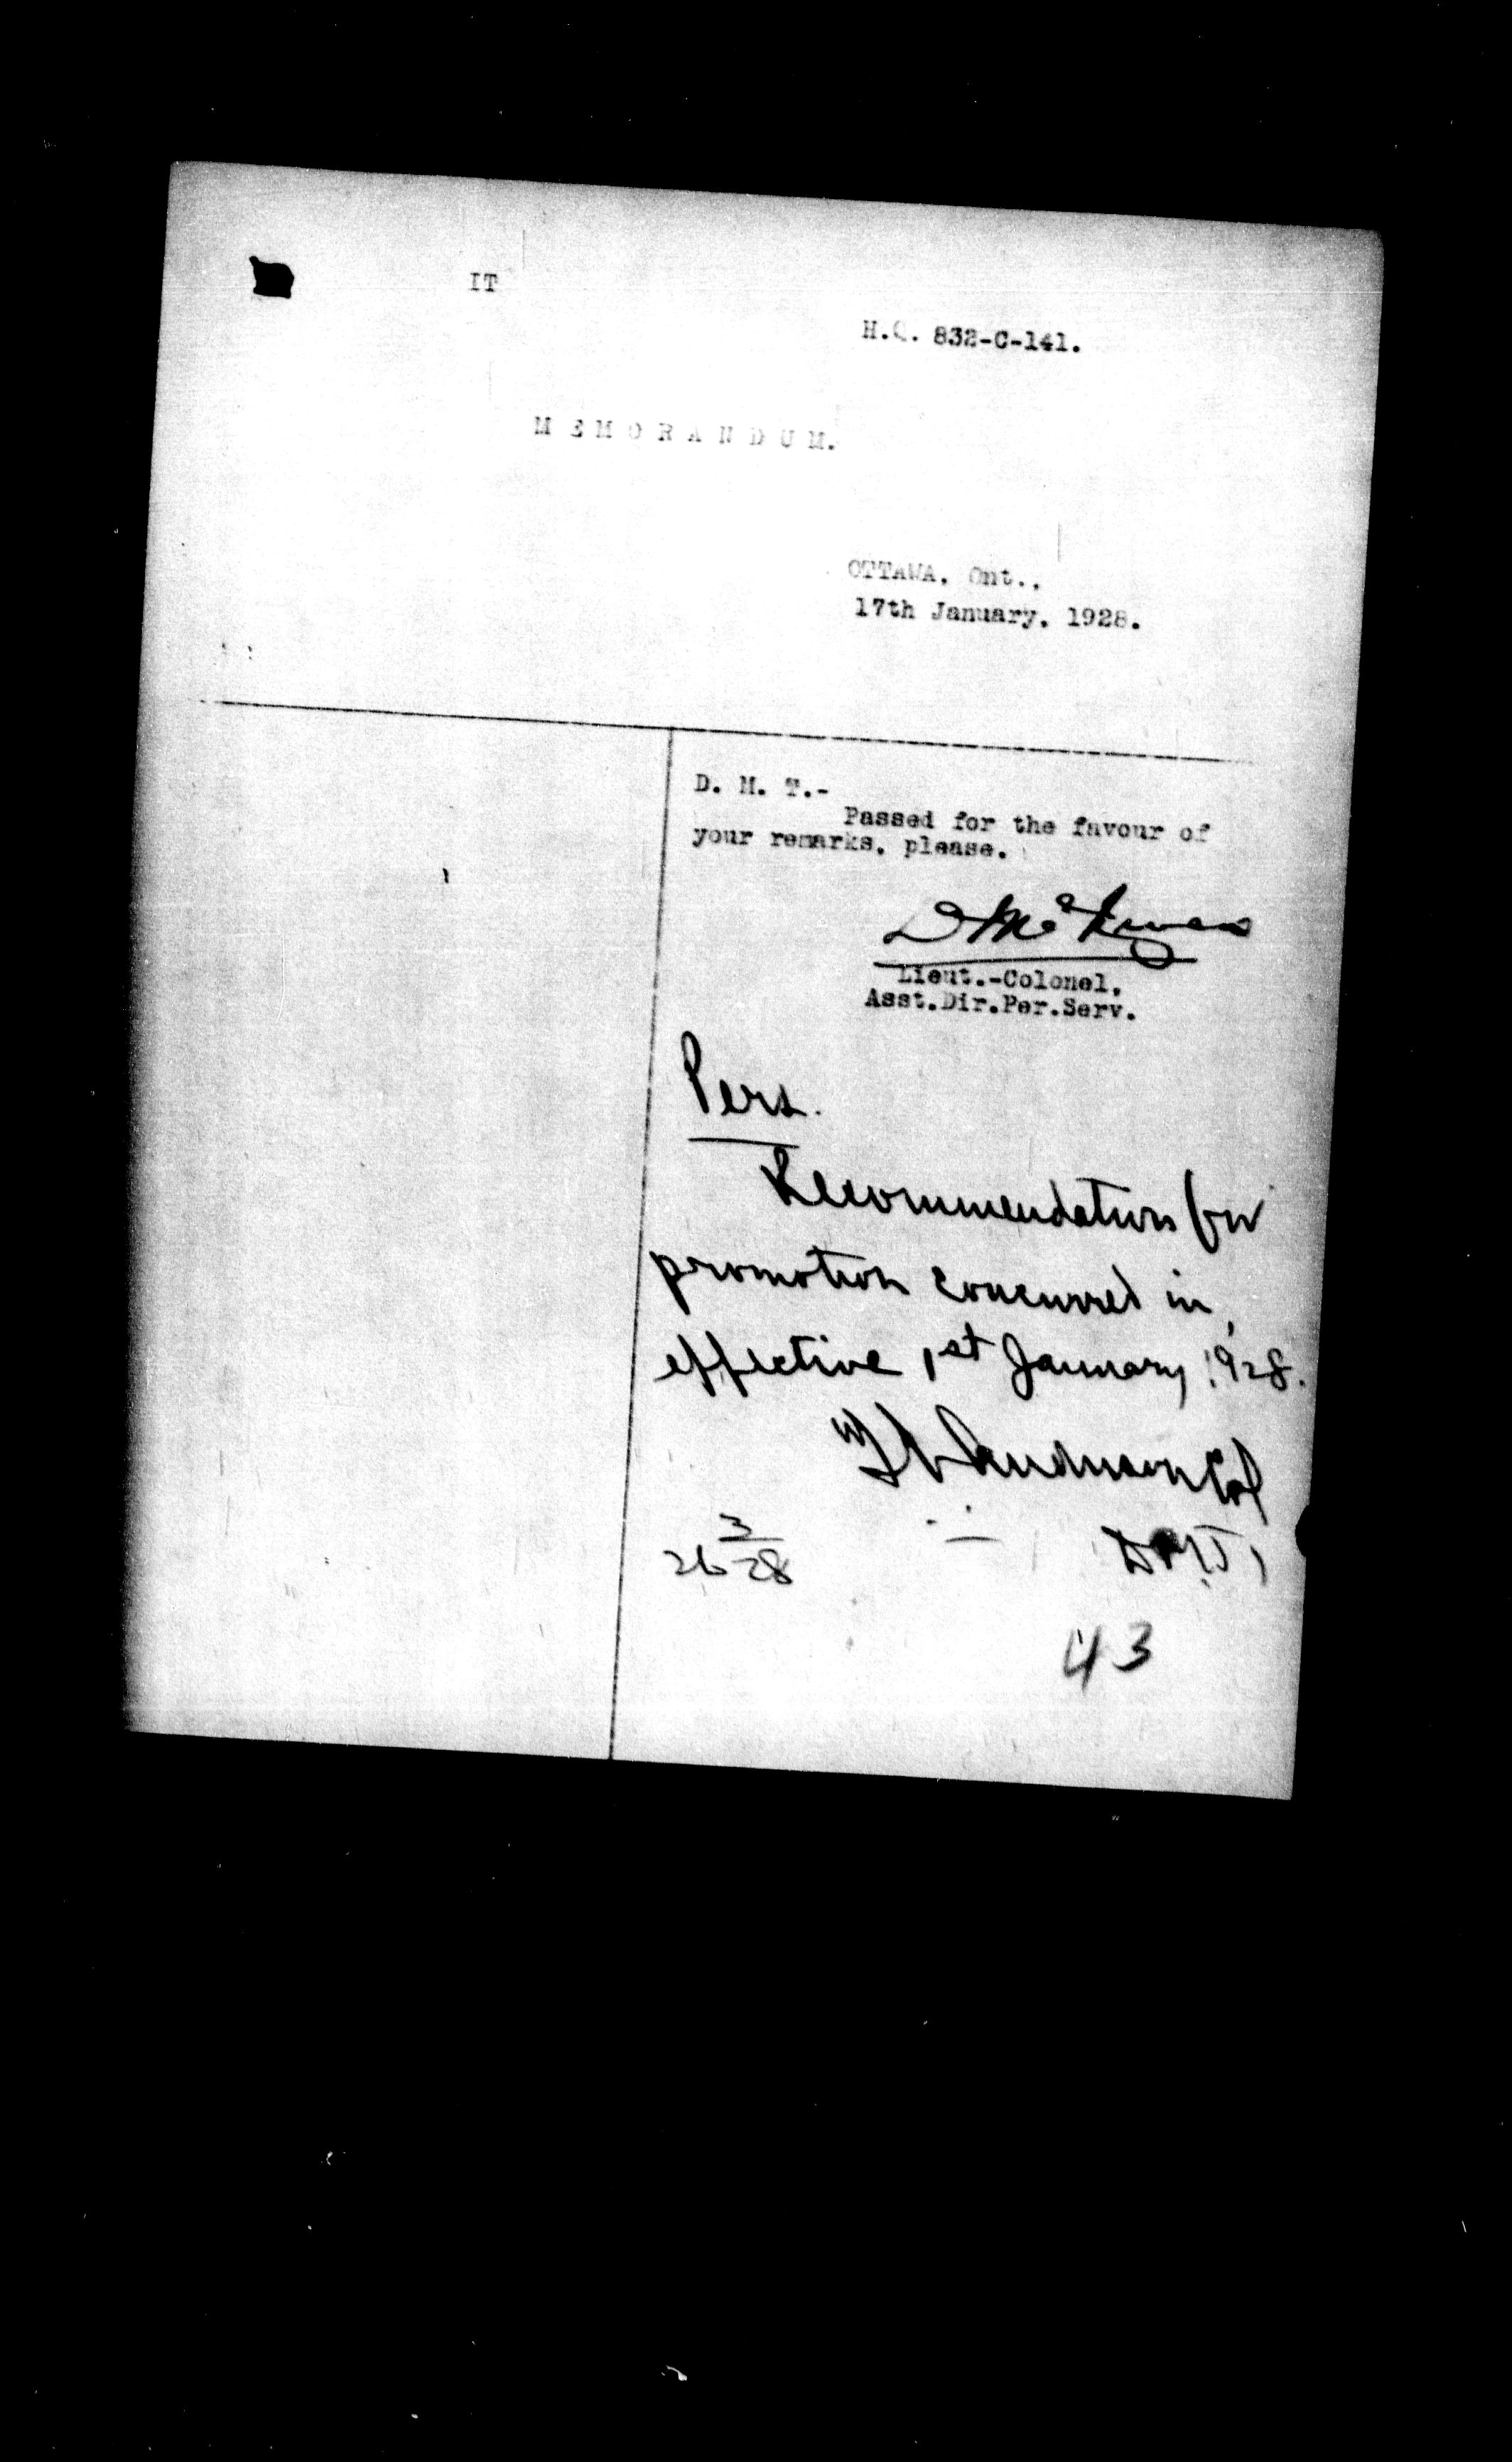 IT
H.Q. 832-C-141.
MEMORANDUM.
OTTAWA, Ont.,
17th January, 1928.
D. M. T.-
Passed for the favour of
your remarks, please.
Lieut.-Colonel,
Asst.Dir.Per.Serv.
Pers.
Recommendation for
promotion concurred in,
effective 1st January 1928.
Col
3
26 28
D.M.T.
43